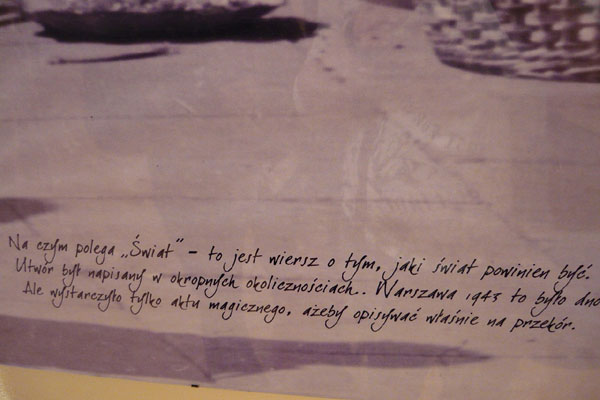 Na czym polega „Świat" - to jest wiersz o tym, jaki świat powinien być.
Utwór był napisany w okropnych okolicznościach.. Warszawa 1943 to było dno
Ale wystarczyło tylko aktu magicznego, ażeby opisywać właśnie na przekór.